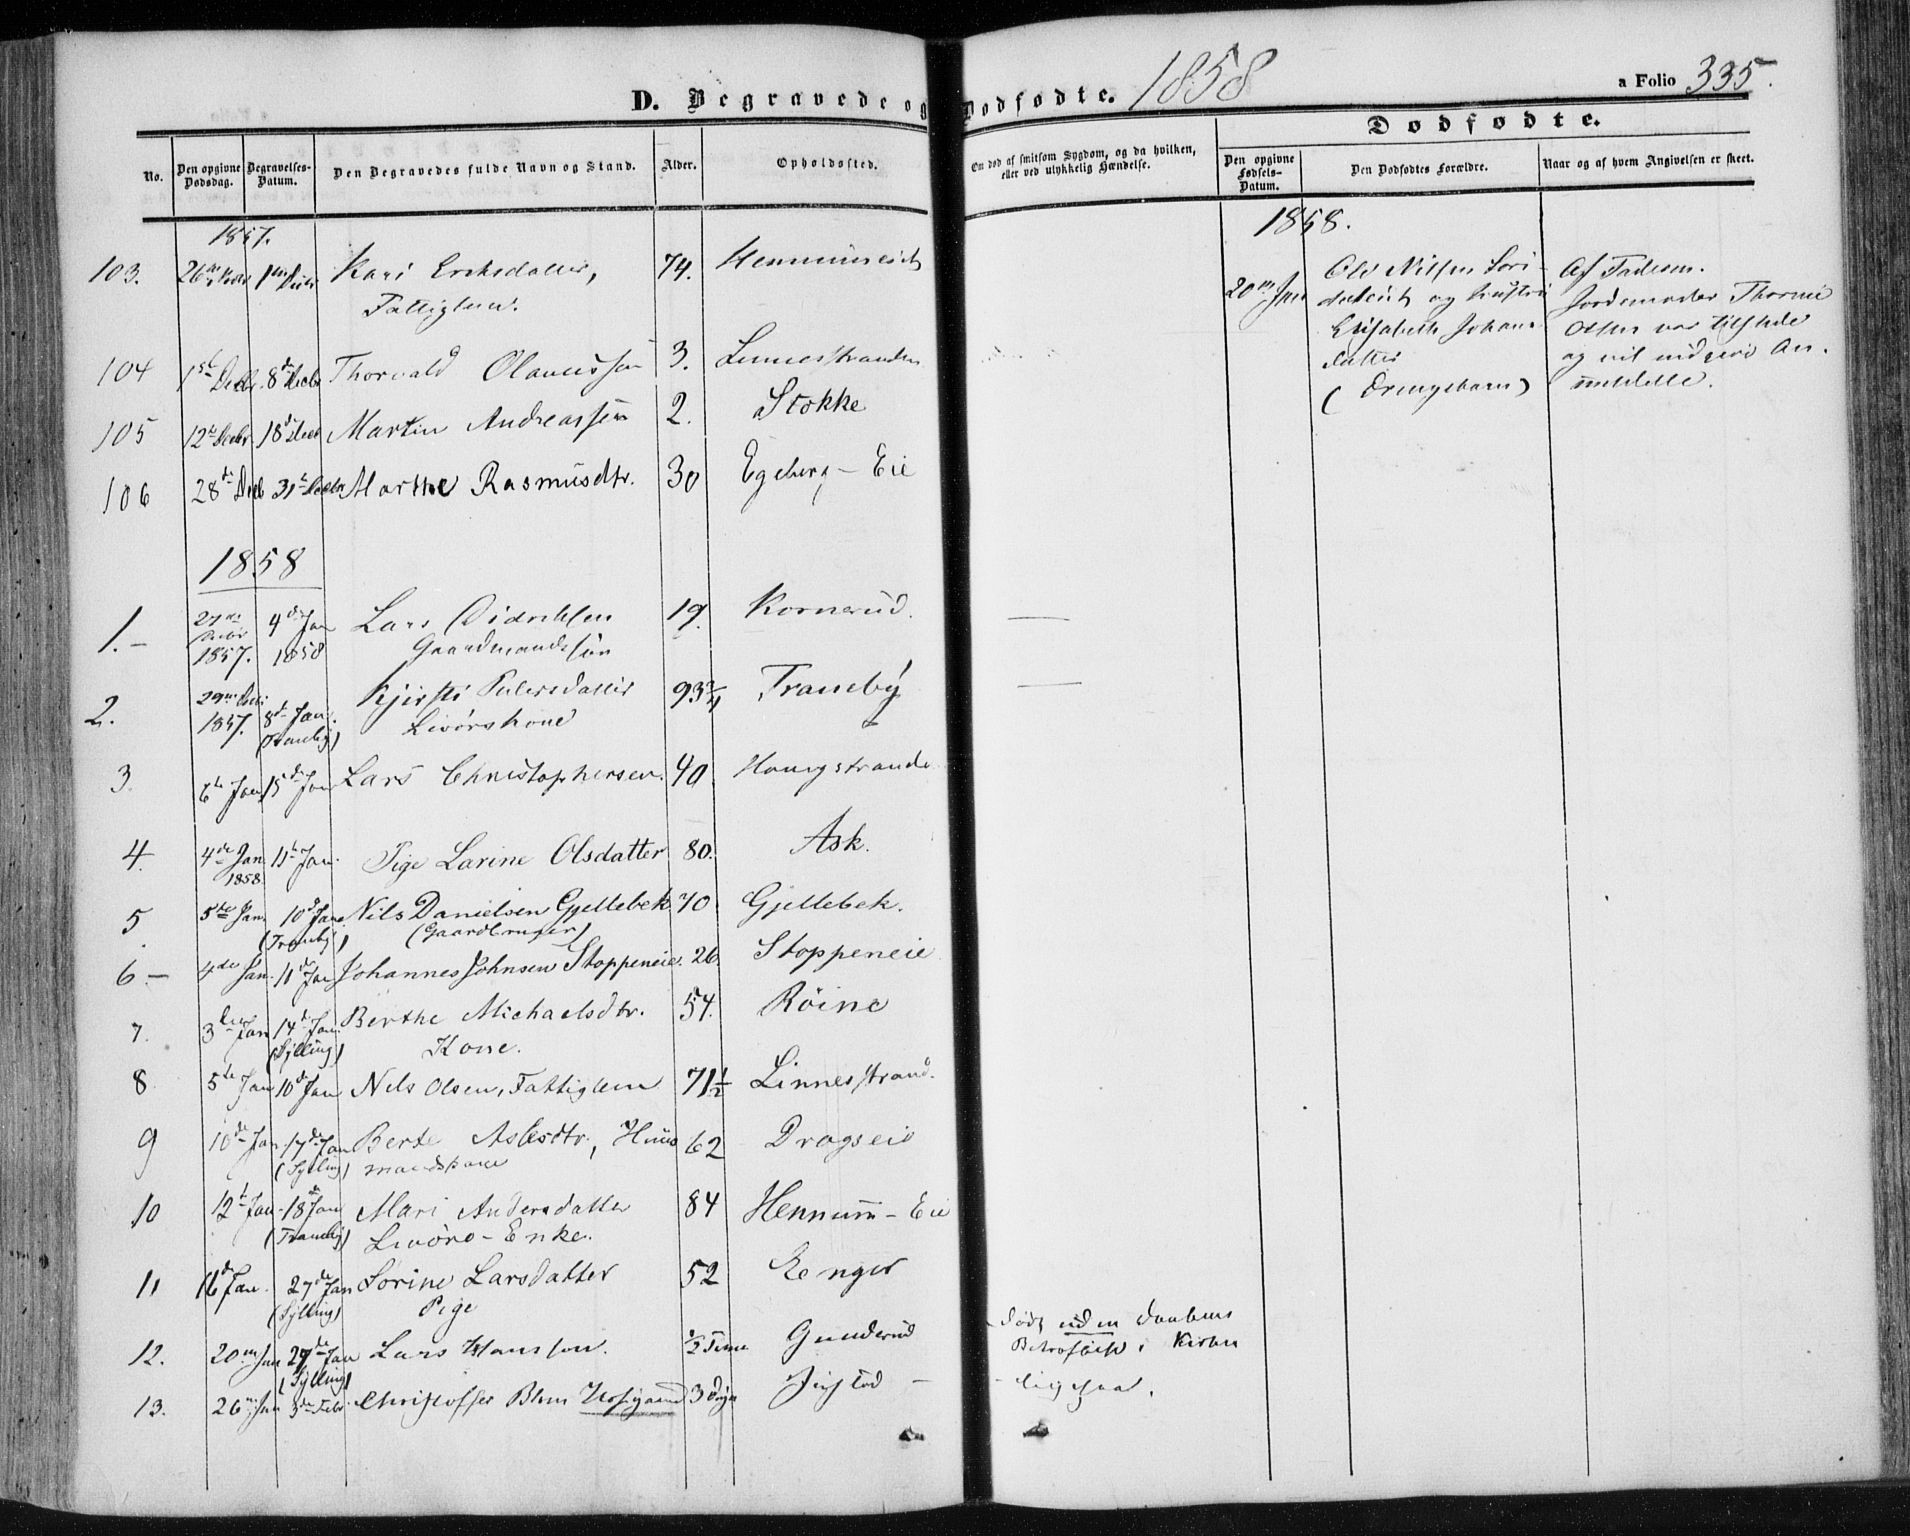 D. Begravede og Dødfødte. 1858
a Folio 335.
Dødfødte.
No.
Den opgivne Dødsdag.
Begravelses-Datum.
Den Begravedes fulde Navn og Stand.
Alder.
Opholdssted.
Om død af smitsom Sygdom, og da hvilken, eller ved ulykkelig Hændelse.
Den opgivne Fødsels-Datum.
Den Dødfødtes Forældre.
Naar og af hvem Angivelsen er skeet.
1857.
103. 26de 1ste Kari Eriksdatter, 74.
Fattiglem.
104 1ste Decbr. 8de Decbr Thorvald Olaussen 3. Linnesstranden
105 12te Decbr 18de Decb Martin Andreassen 2. Stokke
106 28de Decb 31te Decbr Marthe Rasmusdtr. 30 Egeberg - Eie
1858
1.- 27de Decbr 1857. 4de Jan 1858 Lars Didriksen 19. Kornerud.
Gaardmandssøn
2. 29de Decbr 1857. 8de Jan. (Tranby) Kjersti Pedersdatter 93 3/4 Traneby
Livørskone
3. 6te Jan 15de Jan Lars Christophersen. 40
4. 4de Jan 1858. 11te Jan. Pige Larine Olsdatter 80. Ask.
5 5te Jan. 10de Jan. (Tranby) Nils Danielsen Gjellebek 70 Gjellebek.
(Gaardbruger)
6 - 4de Jan. 11te Jan Johannes Johnsen Stoppeneie. 26. Stoppeneie
7. 3die Jan 14de Jan. (Sylling) Berthe Michaelsdtr. 54. Röine
Kone.
8 5te Jan 10de Jan Nels Olsen, Fattiglem 71 1/2 Linnesstrand.
9 10de Jan 17de Jan (Sylling) Berte Aslesdtr., Huus 62 Dragseie
mandskone
10 12te Jan 18de Jan (Tranby) Mari Andersdatter 84 Hennum - Eie
Livørs - Enke.
11 16de Jan. 27de Jan (Sylling) Sørine Larsdatter 52 Enger
Pige
12. 20de Jan 27de Jan (Sylling) Lars Hansson. 1/2 Time Gunderud
død uden Daabens
Bekræftelse i Kirken
13. 26de Jan 3de Febr. Christoffer Blom 3 Døgn
ligesaa.
1858.
20de Jan
Ole Nilsen
og Hustru
Elisabeth Johans
datter
(Drengebarn)
Af Faderen.
Jordemoder Thorine
Olsen var tilstede